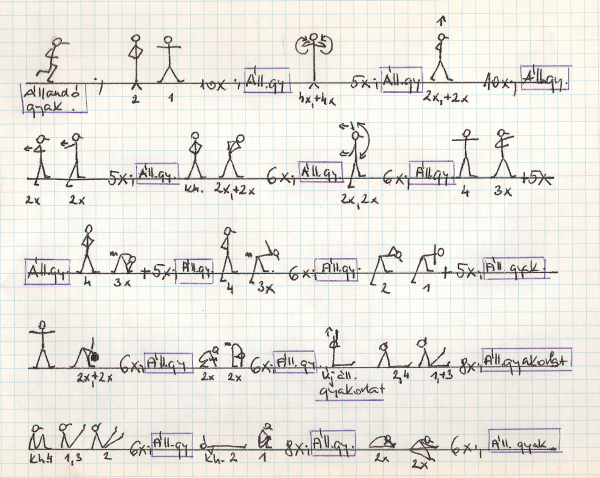 Állandó gyak. ; 2 1 10x ; Áll.gy 4x,+4x 5x; Áll.gy 2x,+2x 10x; Áll.gy.
2x 2x 5x; Áll.gy. Kh. 2x,+2x 6x; Áll.gy. 2x, 2x 6x; Áll.gy. 4 3x +5x
Áll.gy. 4 3x +5x; Áll.gy. 4 3x 6x; Áll.gy. 2 1 +5x; Áll. gyak.
2x,+2x 6x; Áll.gy 2x 2x 6x; Áll.gy Új áll. gyakorlat 2,4 1,+3 8x; Áll.gyakorlat
Kh.4 1,3 2 6x; Áll.gy Kh. 2 1 8x; Áll.gy. 2x 2x 6x; Áll. gyak.